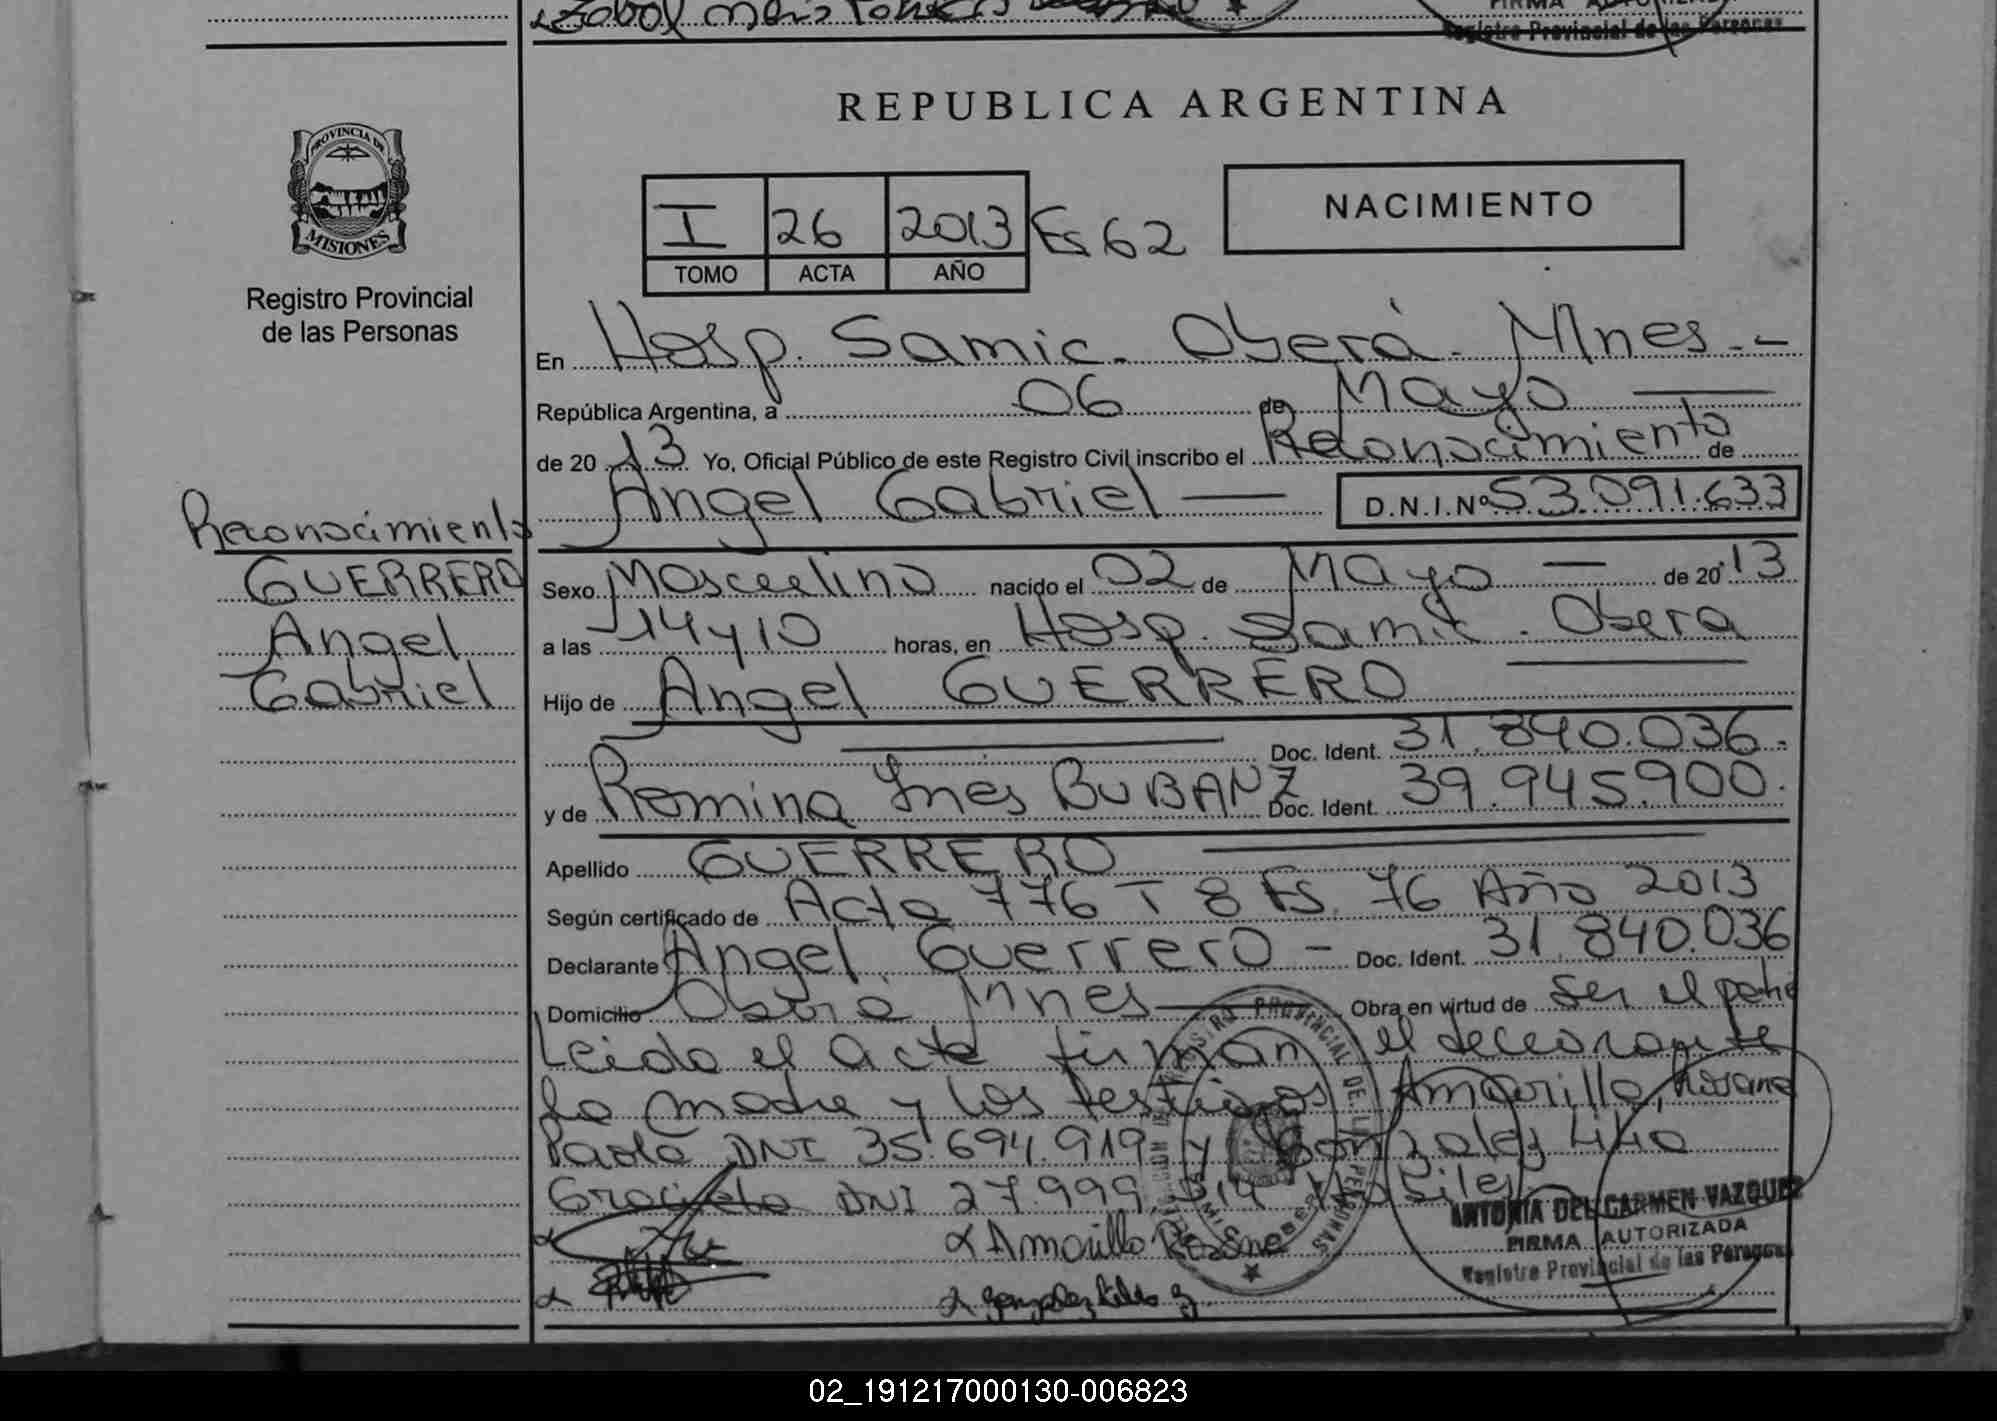 REPUBLICA ARGENTINA
PROVINCIA DE
MISIONES
Registro Provincial
de las Personas
I 26 2013 Fs 62
TOMO ACTA AÑO
NACIMIENTO
En Hosp. Samic. Oberá. Mnes.-
República Argentina, a 06 de Mayo
de 20 13 Yo, Oficial Público de este Registro Civil inscribo el Reconocimiento de
Angel Gabriel D.N.I.Nº 53.091.633
Reconocimiento
GUERRERO
Angel
Gabriel
Sexo Masculino nacido el 02 de Mayo de 20 13
a las 14 y 10 horas, en Hosp. Samic. Obera
Hijo de Angel GUERRERO
Doc. Ident. 31.840.036.
y de Romina Ynes BUBANZ Doc. Ident. 39.945.900.
Apellido GUERRERO
Según certificado de Acta 776 T 8 Fs. 76 Año 2013
Declarante Angel Guerrero - Doc. Ident. 31.840.036
Domicilio Oberá Mnes Obra en virtud de ser el padre
Leida el acta firman el declarante
La madre y los testigos Amarillo, Rosana
Paola DNI 35.694.919 y Gonzalez Lila
Graciela DNI 27.999.514
REGISTRO PROVINCIAL DE LAS PERSONAS
MISIONES
ANTONIA DEL CARMEN VAZQUEZ
FIRMA AUTORIZADA
Registro Provincial de las Personas
Amarillo Rosana
Gonzalez Lila G
FIRMA AUTORIZADA
Registro Provincial de las Personas
02_191217000130-006823